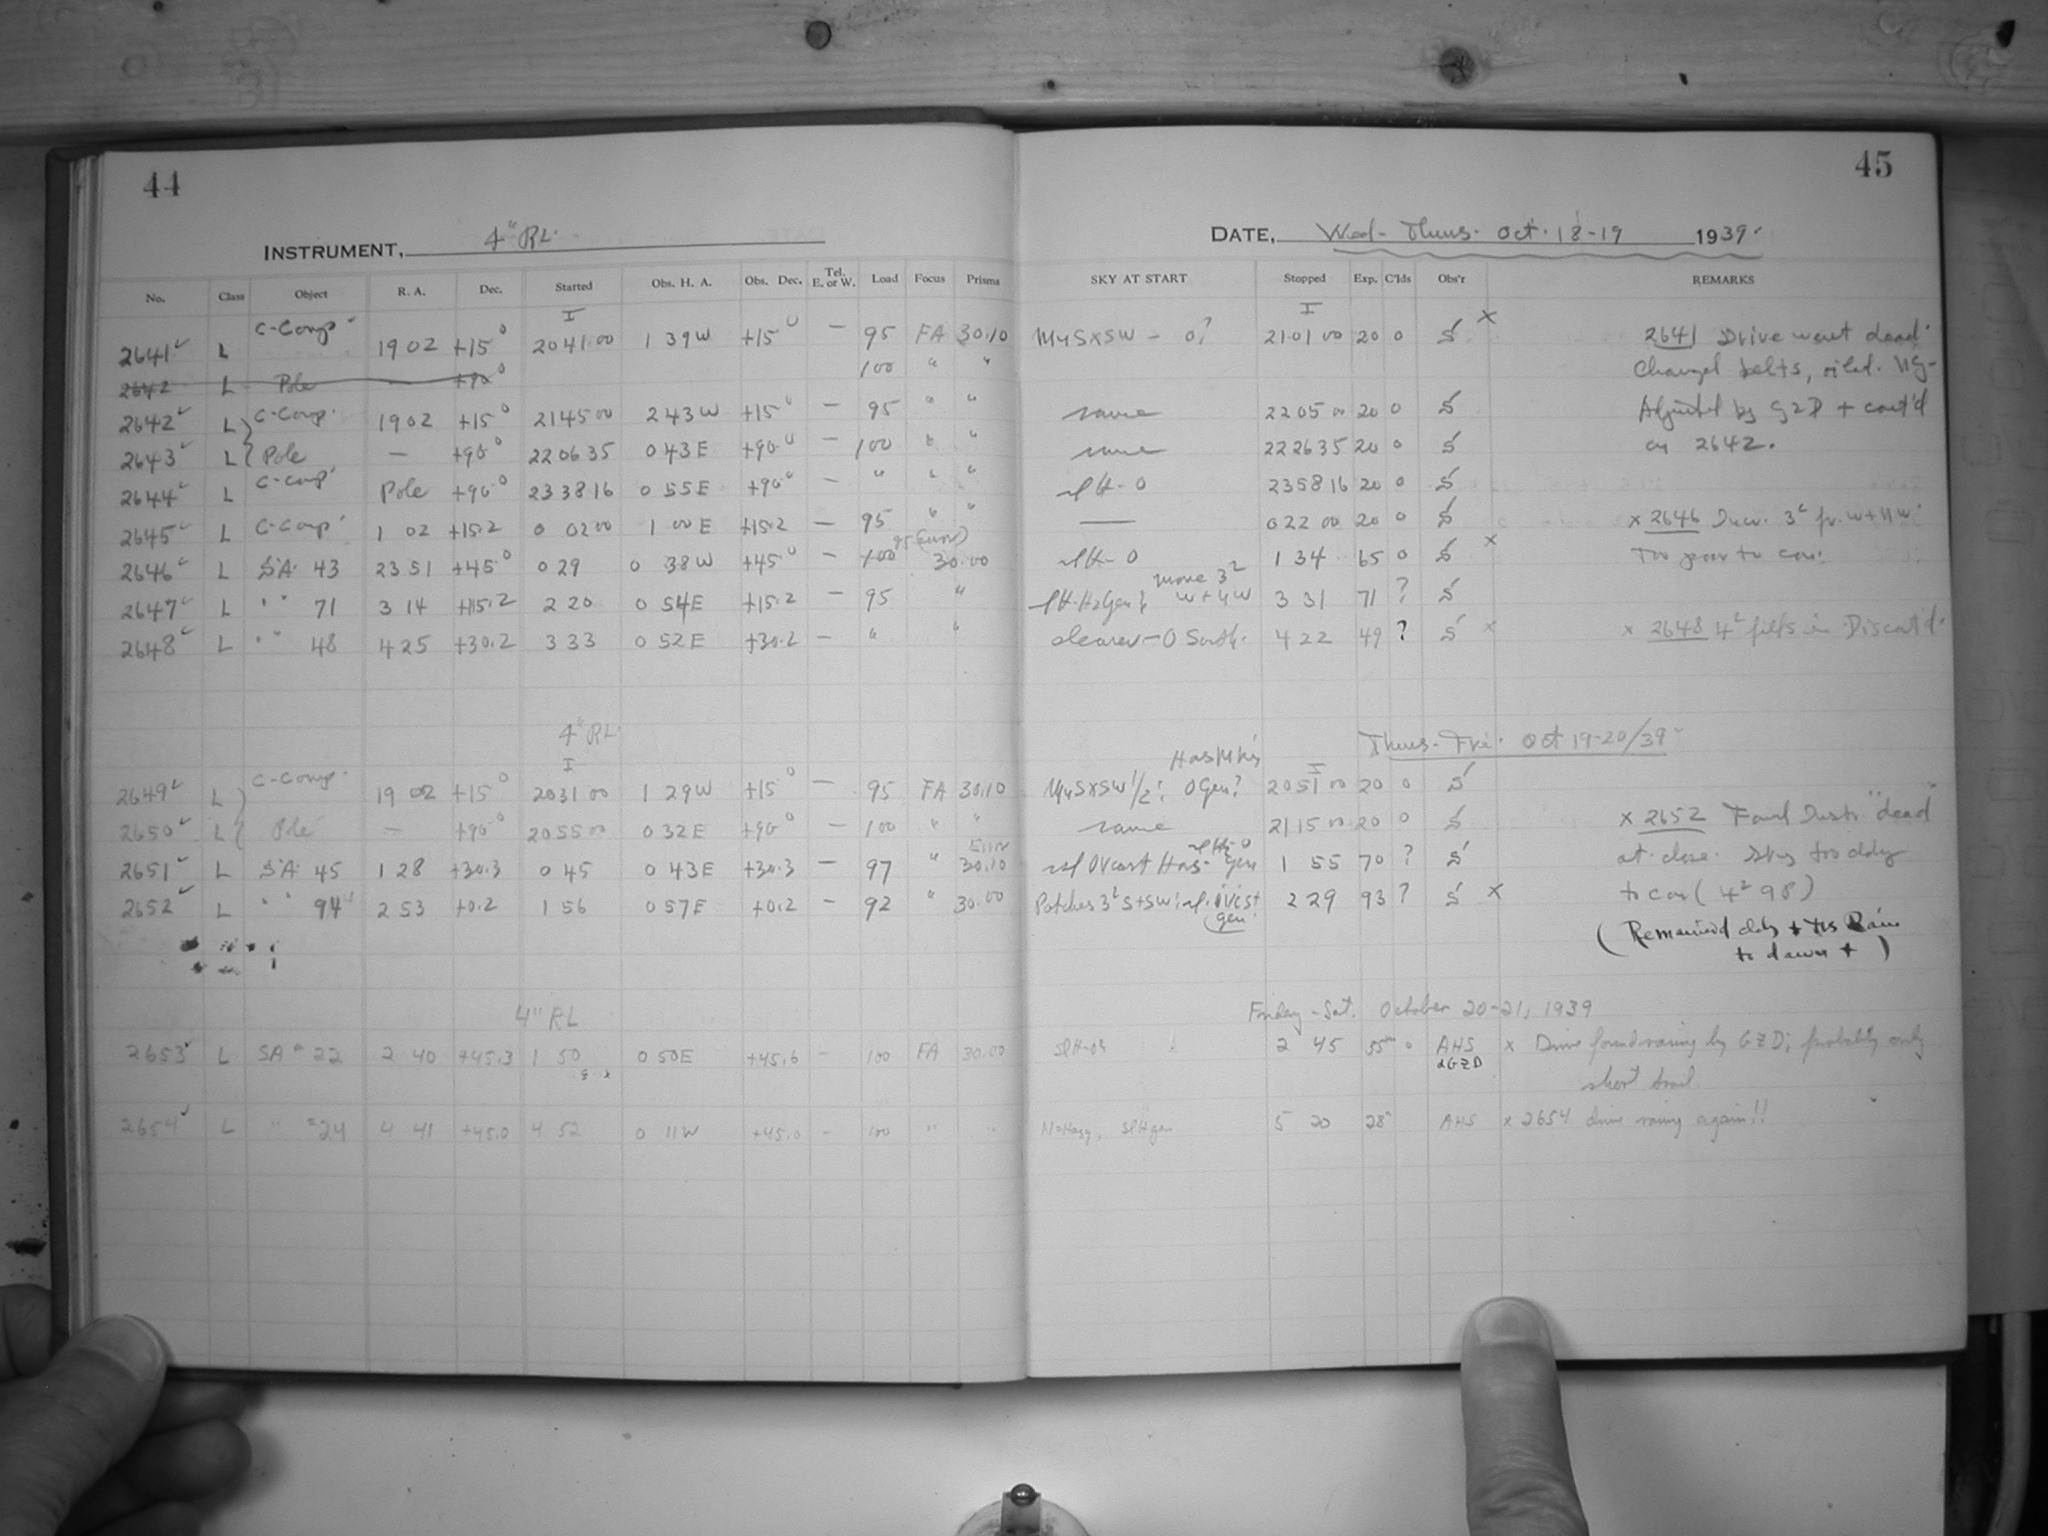 44
45
INSTRUMENT, 4" RL.
DATE, Wed - Thurs. Oct. 18-19 1939.
No. Class Object R. A. Dec. Started Obs. H. A. Obs. Dec. Tel. E. or W. Load Focus Prisms SKY AT START Stopped Exp. C'lds Obs'r REMARKS
I I
2641 L C-Comp. 19 02 +15 0 20 41 00 1 39 W +15 0 — 95 FA 30.10 0? 21 01 00 20 0 S x 2641 Drive went dead.
2642 L Pole +90 0 100 " " Changed belts, oiled.
2642 L C-Comp. 19 02 +15 0 21 45 00 2 43 W +15 0 — 95 " " same 22 05 00 20 0 S Adjusted by GZD + cont'd
2643 L Pole — +90 0 22 06 35 0 43 E +90 0 — 100 " " same 22 26 35 20 0 S on 2642.
2644 L C-Comp. Pole +90 0 23 38 16 0 55 E +90 0 — " " " sl H - 0 23 58 16 20 0 S
2645 L C-Comp. 1 02 +15.2 0 02 00 1 00 E +15.2 — 95 " " — 0 22 00 20 0 S x 2646
95 (error)
2646 L S.A. 43 23 51 +45 0 0 29 0 38 W +45 0 — 100 30.00 sl H - 0 1 34 65 0 S x Too poor to con.
2647 L " " 71 3 14 +15.2 2 20 0 54 E +15.2 — 95 " 3 31 71 ? S
2648 L " " 48 4 25 +30.2 3 33 0 52 E +30.2 — " " clearer - 0 South. 4 22 49 ? S x x 2648 Discont'd.
4" RL.
Thurs - Fri. Oct 19-20/39
I I
2649 L C-Comp. 19 02 +15 0 20 31 00 1 29 W +15 0 — 95 FA 30.10 0 Gen? 20 51 00 20 0 S
2650 L Pole — +90 0 20 55 00 0 32 E +90 0 — 100 " " same 21 15 00 20 0 S x 2652 Found Instr. "dead"
2651 L S.A. 45 1 28 +30.3 0 45 0 43 E +30.3 — 97 " 30.10 sl Ovcast gen 1 55 70 ? S at close. Sky too cldy
2652 L " " 94 2 53 +0.2 1 56 0 57 E +0.2 — 92 " 30.00 Patches S+SW; sl. ovcst gen. 2 29 93 ? S x to con
(Remained cldy + Rain
to dawn + )
4" RL
Friday - Sat. October 20-21, 1939
2653 L SA " 22 2 40 +45.3 1 50 0 50 E +45.6 - 100 FA 30.00 2 45 55 0 AHS & GZD x Drive found racing by GZD; probably only
short trail.
2654 L " " 24 4 41 +45.0 4 52 0 11 W +45.0 - 100 " " 5 20 28 AHS x 2654 drive racing again!!